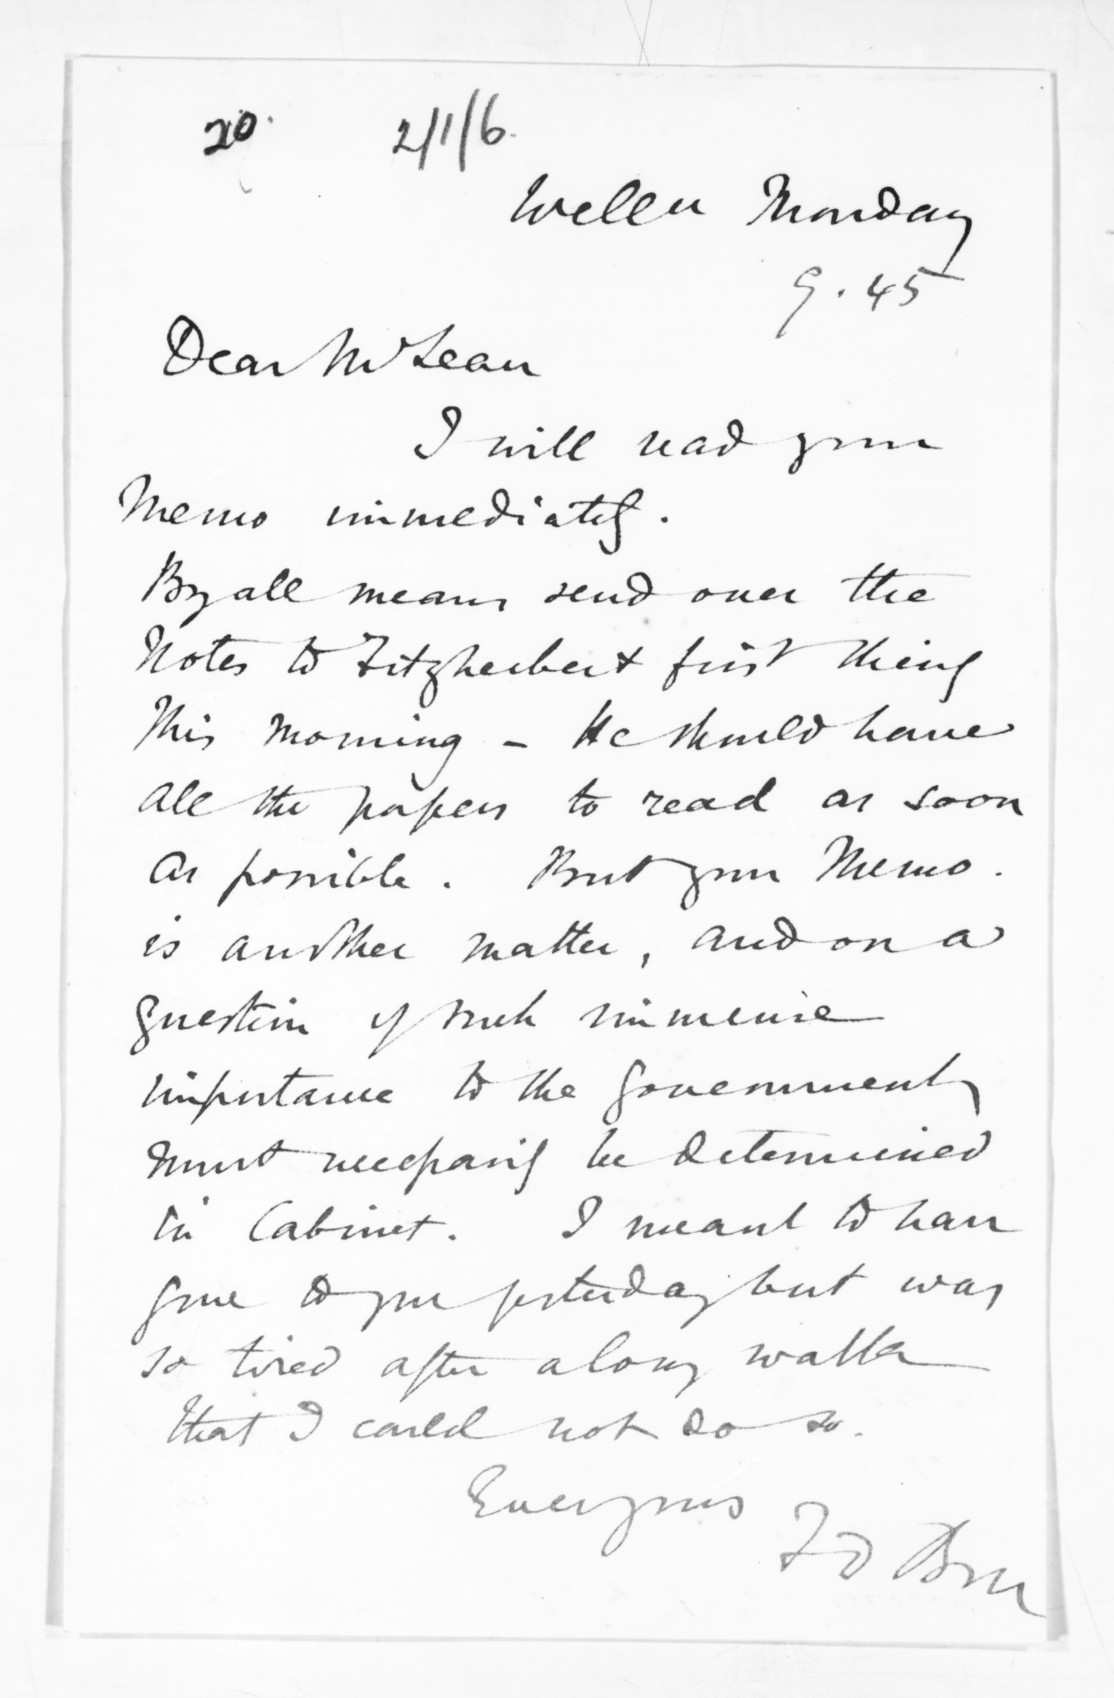 20. 2/1/6.
Welln Monday
9.45
Dear McLean
I will read your
Memo immediately.
By all means send over the
Notes to Fitzherbert first thing
this morning - He should have
all the papers to read as soon
as possible. But your Memo.
is another matter, and on a
question of such immense
importance to the Government,
must necessarily be determined
in Cabinet. I meant to have
gone to you yesterday but was
so tired after a long walk
that I could not do so.
Ever yours
F D Bell